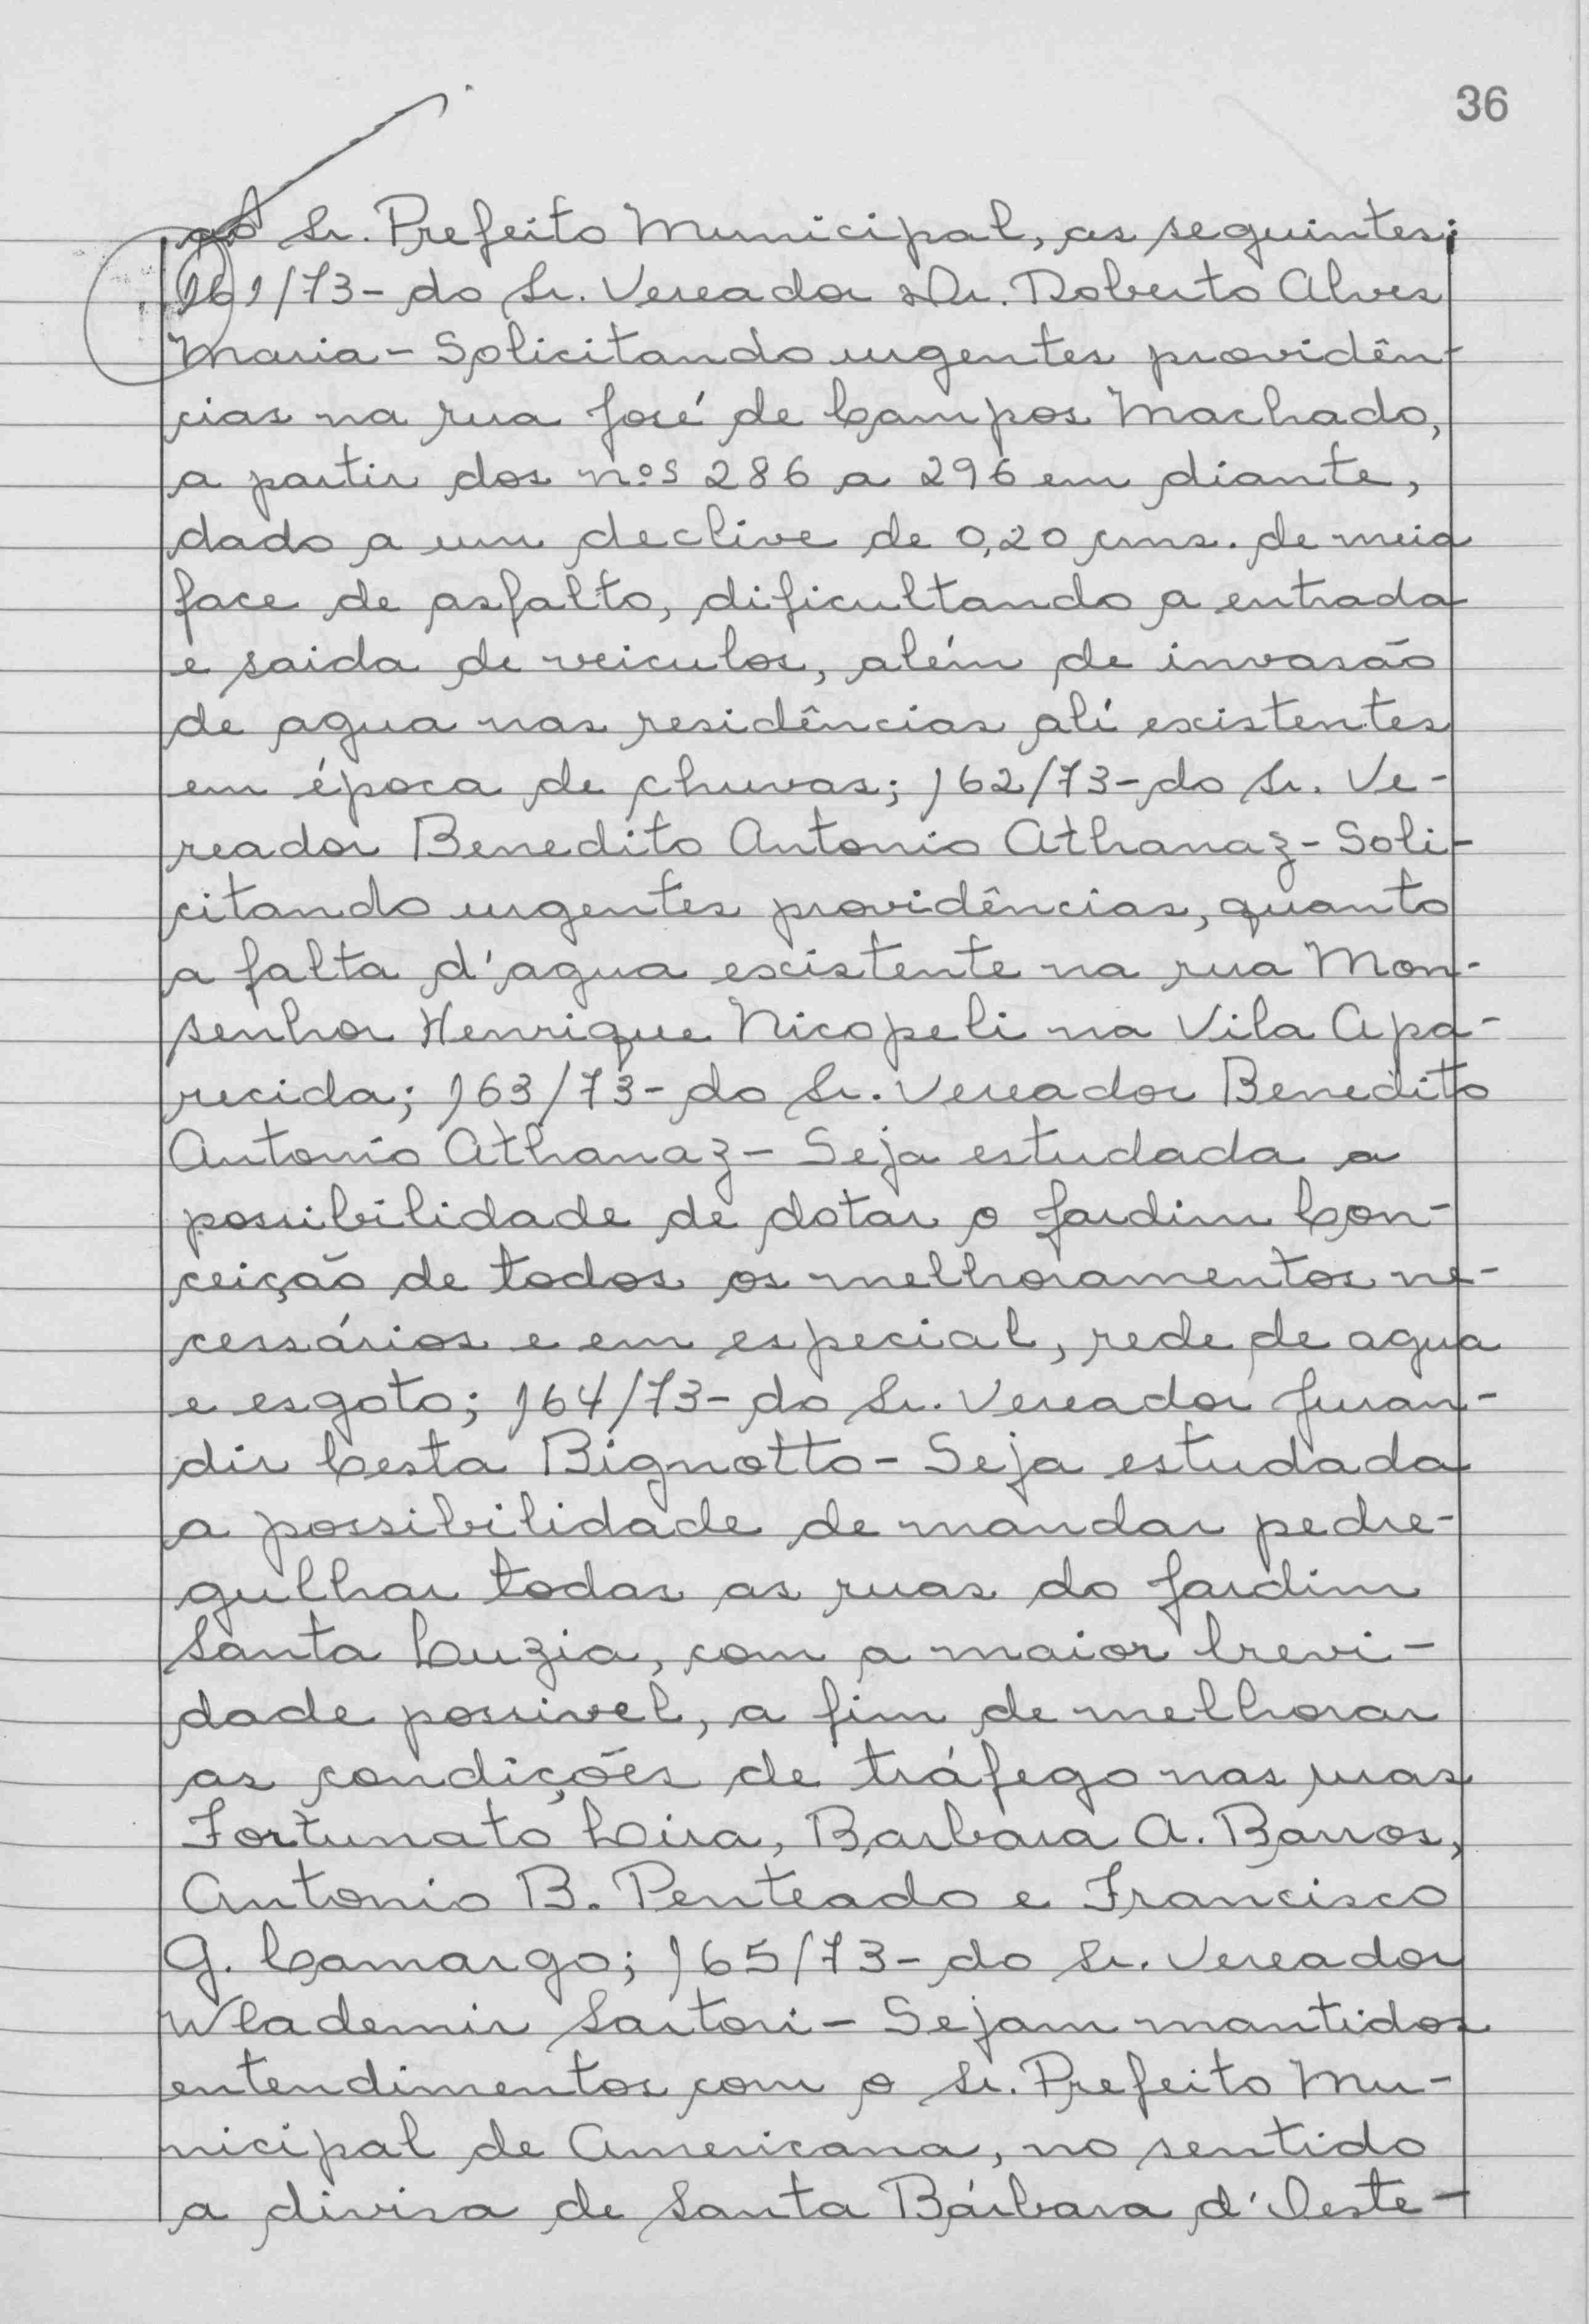 36
ao Sr. Prefeito Municipal, as seguintes:
161/73- do Sr. Vereador Dr. Roberto Alves
Maria - Solicitando urgentes providên-
cias na rua José de Campos Machado,
a partir dos nºs 286 a 296 em diante,
dado a um declive de 0,20 cms. de meia
face de asfalto, dificultando a entrada
e saida de veiculos, além de invasão
de agua nas residências alí existentes
em época de chuvas; 162/73- do Sr. Ve-
reador Benedito Antonio Athanaz - Soli-
citando urgentes providências, quanto
a falta d'agua existente na rua Mon-
senhor Henrique Nicopeli na Vila Apa-
recida; 163/73- do Sr. Vereador Benedito
Antonio Athanaz - Seja estudada a
possibilidade de dotar o Jardim Con-
ceição de todos os melhoramentos ne-
cessários e em especial, rede de agua
e esgoto; 164/73- do Sr. Vereador Juran-
dir Cesta Bignotto - Seja estudada
a possibilidade de mandar pedre-
gulhar todas as ruas do Jardim
Santa Luzia, com a maior brevi-
dade possivel, a fim de melhorar
as condições de tráfego nas ruas
Fortunato Lira, Barbara A. Barros,
Antonio B. Penteado e Francisco
G. Camargo; 165/73- do Sr. Vereador
Wlademir Sartori - Sejam mantidos
entendimentos com o Sr. Prefeito Mu-
nicipal de Americana, no sentido
a divisa de Santa Bárbara d'Oeste-